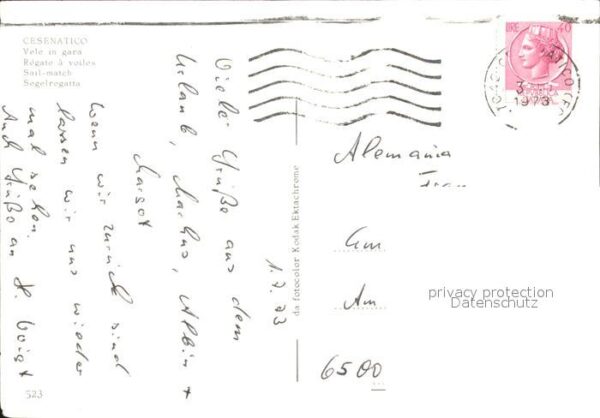 CESENATICO
Vele in gara
Régate à voiles
Sail-match
Segelregatta
1.7.73
Viele Grüße aus dem
Urlaub, Markus, Albin +
Margot
Wenn wir zurück sind
lassen wir uns wieder
mal sehen.
Auch Grüße an H. Voigt
523
da fotocolor Kodak Ektachrome
LIRE 40
1973
Alemania
Frau
Am
6500
privacy protection
Datenschutz